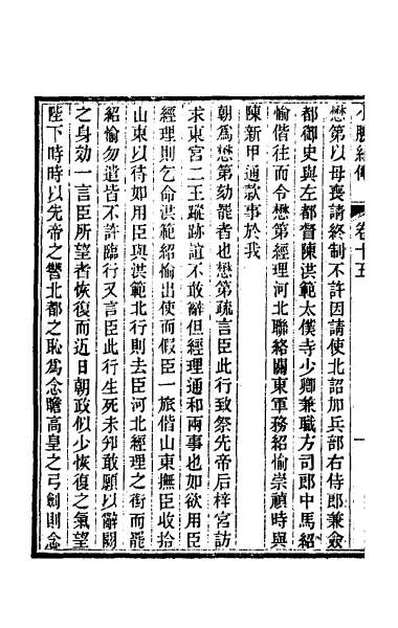 小腆紀傳　卷十五　一
懋第以母喪請終制不許因請使北詔加兵部右侍郎兼僉
都御史與左都督陳洪範太僕寺少卿兼職方司郎中馬紹
愉偕往而令懋第經理河北聯絡關東軍務紹愉崇禎時與
陳新甲通款事於我
朝爲懋第劾罷者也懋第疏言臣此行致祭先帝后梓宮訪
求東宮二王蹤跡誼不敢辭但經理通和兩事也如欲用臣
經理則乞命洪範紹愉出使而假臣一旅偕山東撫臣收拾
山東以待如用臣與洪範北行則去臣河北經理之銜而罷
紹愉勿遣皆不許臨行又言臣此行生死未卯敢願以辭闕
之身効一言臣所望者恢復而近日朝政似少恢復之氣望
陛下時時以先帝之讐北都之恥爲念瞻高皇之弓劍則念